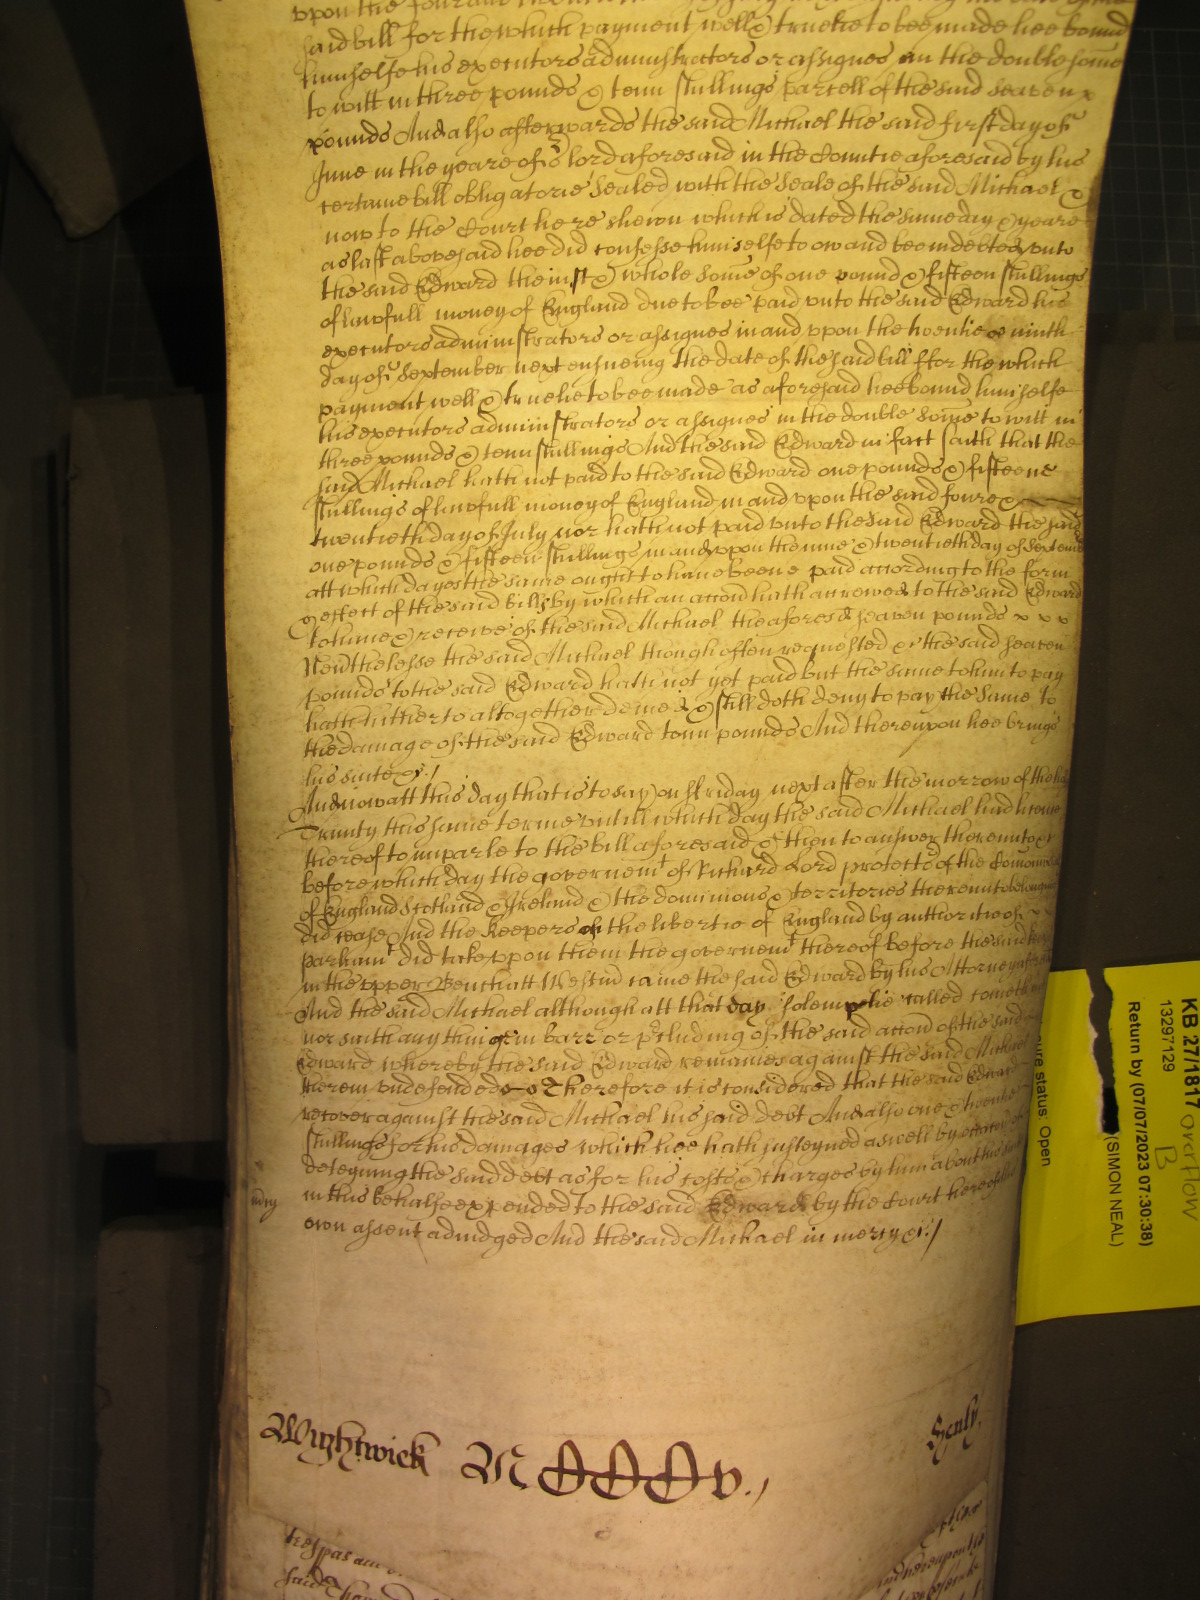 upon the
said bill for the which payment well & truelie to bee made hee bound
himselfe his executors administrators or assignes in the double some
to witt in three pounds & tenn shillings parcell of the said seaven x
pounds And also afterwards the said Michael the said first day of
June in the yeare of or lord aforesaid in the Countie aforesaid by his
certaine bill obligatorie sealed with the seale of the said Michael &
now to the Court here shewn which is dated the same day & yeare
as last abovesaid hee did confesse himselfe to ow and bee indebted unto
the said Edward the in whole some of one pound & fifteen shillings
of lawfull money of England due to bee paid unto the said Edward his
executors administrators or assignes in and upon the twentie ninth
day of September next ensueing the date of the said bill ffor the which
payment well & truelie to bee made as aforesaid hee bound himselfe
his executors administrators or assignes in the double some to witt in
three pounds & tenn shillings And the said Edward in fact saith that the
said Michael hath not paid to the said Edward one pounds & fifteene
shillings of lawfull money of England in and upon the said foure &
twentieth day of July nor hath not paid unto the said Edward the said
one pounds & fifteen shillings in and upon the nine & twentieth day of
att which dayes the same ought to have beene paid according to the form
& effect of the said bills by which an accon hath arrowes to the said Edward
to have & receive of the said Michael the aforesd seaven pounds x x x
Neverthelesse the said Michael though often requested &c the said seaven
pounds to the said Edward hath not yet paid but the same to him to pay
hath hitherto altogether denied & still doth deny to pay the same to
the damage of the said Edward tenn pounds And thereupon hee brings
his suite &c./
And now att this day that is to say on ffriday next after the morrow of the
Trinity this same terme untill which day the said Michael had licence
thereof to imparle to the bill aforesaid & then to answer thereunto &c
before which day the governemt of Richard Lord protector of the
of England Scotland & Ireland & the dominions & territories thereunto
did cease And the Keepers of the libertie of England by authoritie of x x
Parliamt did take upon them the governemt thereof before the said
in the upper Bench att Westm came the said Edward by his Attorney
And the said Michael although att that day solemnelie called
nor saith any thing in barr or pcluding of the said accon of the said
Edward whereby the said Edward remaines against the said Michael
therein undefended Therefore it is considered that the said Edward
recover against the said Michael his said debt And also one & twentie
shillings for his damages which hee hath susteyned aswell by
deteyning the said debt as for his costs & charges by him about his
in this behalfe expended to the said Edward by the Court here
own assent adiudged And the said Michael in mercy &c./
mercy
Wightwick
Henly.
trespas
said
KB 27/1817 overflow
B
13297129
Return by (07/07/2023 07:30:38)
(SIMON NEAL)
ure status: Open